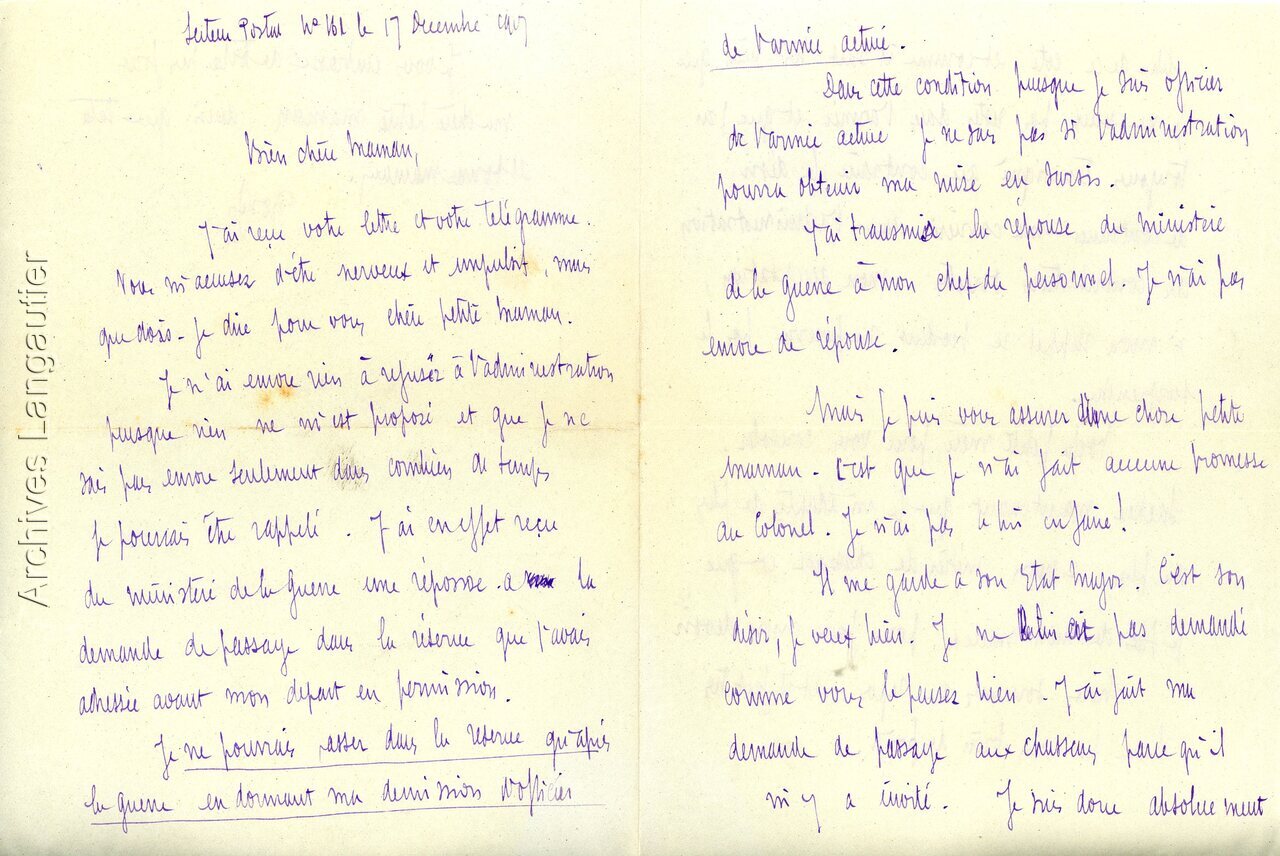 Secteur Postal No 161 le 17 Decembre
Bien chère Maman,
J'ai reçu votre lettre et votre télégramme.
Vous m'accusez d'être nerveux et impulsif, mais
que dois-je dire pour vous chère petite Maman.
Je n'ai encore rien à refuser à l'administration
puisque rien ne m'est proposé et que je ne
sais pas encore seulement dans combien de temps
je pourrais être rappelé. J'ai en effet reçu
du ministère de la Guerre une réponse a la
demande de passage dans la réserve que j'avais
adressée avant mon depart en permission.
Je ne pourrais passer dans la reserve qu'après
la guerre en donnant ma demission d'officier
de l'armée active.
Dans cette condition puisque je suis officier
de l'armée active je ne sais pas si l'administration
pourra obtenir ma mise en sursis.
J'ai transmis la réponse du ministère
de la guerre à mon chef du personnel. Je n'ai pas
encore de réponse.
Mais je puis vous assurer d'une chose petite
maman - C'est que je n'ai fait aucune promesse
au Colonel. Je n'ai pas à lui en faire!
Il me garde à son Etat Major. C'est son
désir, je veux bien. Je ne lui ai pas demandé
comme vous le pensez bien. J'ai fait ma
demande de passage aux chasseurs parce qu'il
m'y a invité. Je suis donc absolument
Archives Langautier